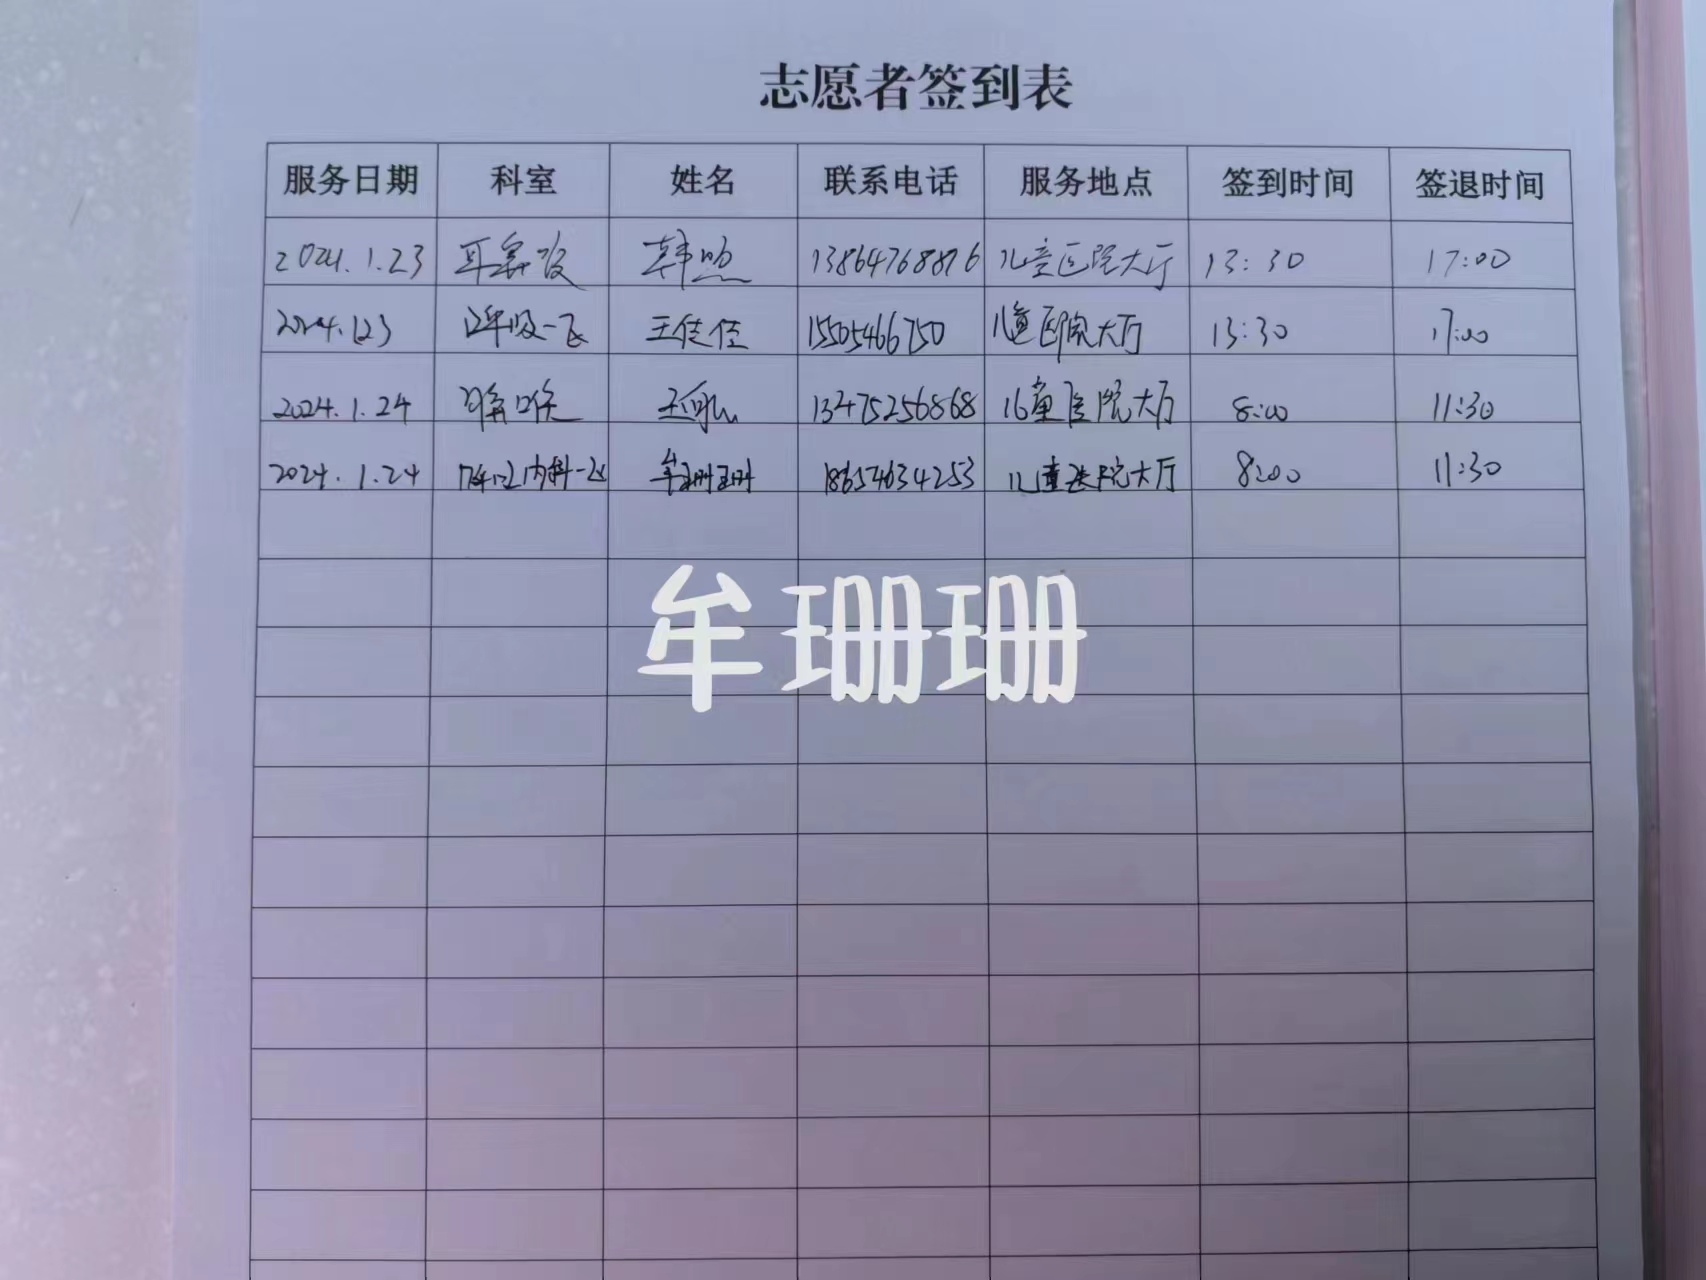 志愿者签到表
服务日期 科室 姓名 联系电话 服务地点 签到时间 签退时间
2024.1.23 韩 13864768876 儿童医院大厅 13:30 17:00
2024.1.23 呼吸一 王佳佳 15505466750 儿童医院大厅 13:30 17:00
2024.1.24 王 13475256868 儿童医院大厅 8:00 11:30
2024.1.24 内科一 牟珊珊 18654634253 儿童医院大厅 8:00 11:30
牟珊珊